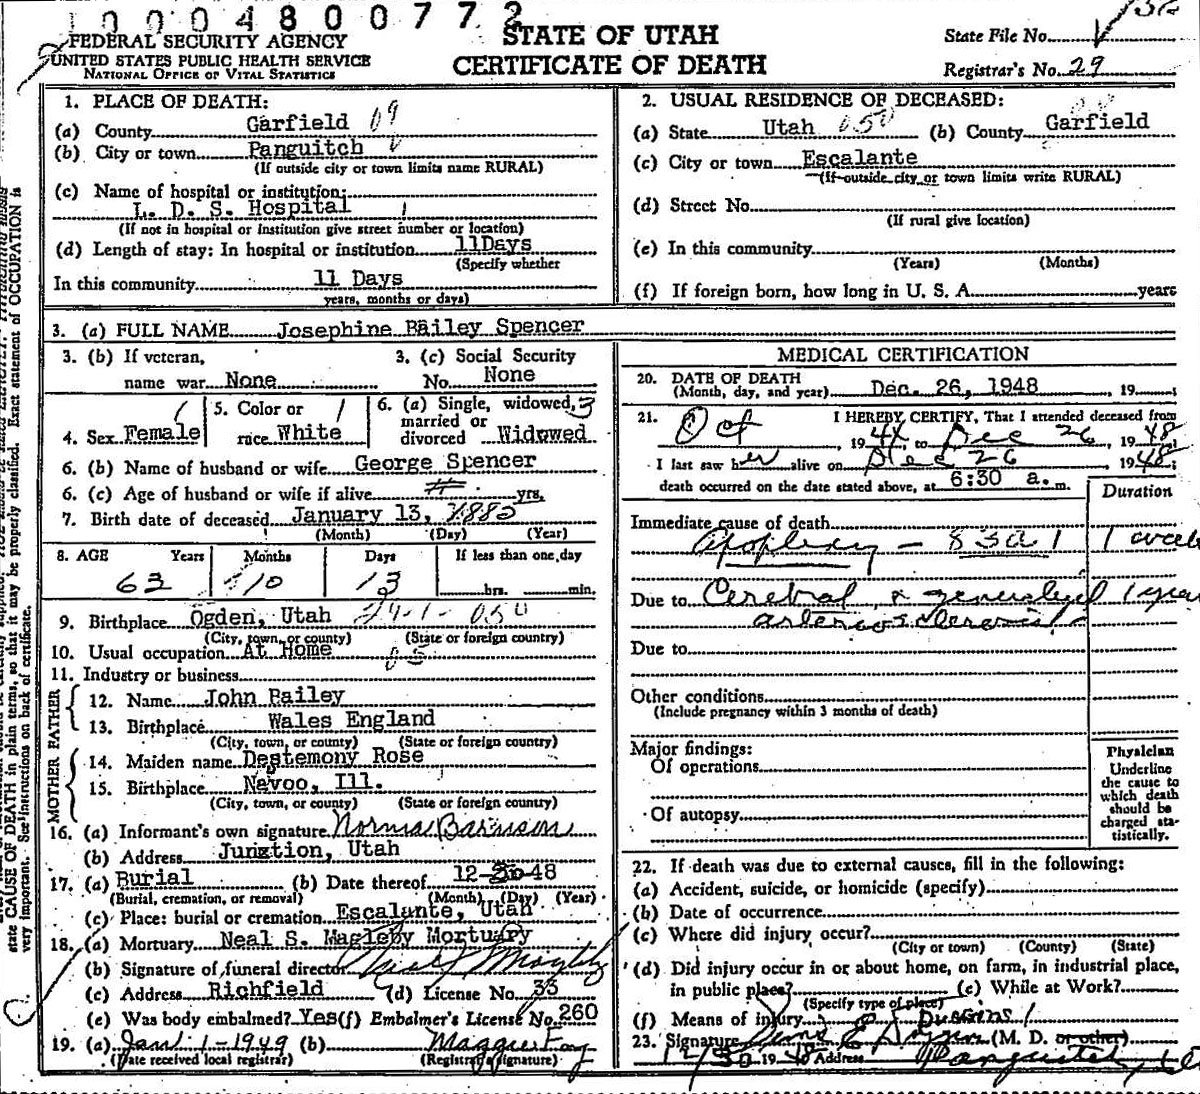 1000480077 2
FEDERAL SECURITY AGENCY
UNITED STATES PUBLIC HEALTH SERVICE
NATIONAL OFFICE OF VITAL STATISTICS
STATE OF UTAH
CERTIFICATE OF DEATH
State File No.
Registrar's No. 29
1. PLACE OF DEATH:
(a) County Garfield 09
(b) City or town Panguitch
(If outside city or town limits name RURAL)
(c) Name of hospital or institution:
L. D. S. Hospital 1
(If not in hospital or institution give street number or location)
(d) Length of stay: In hospital or institution 11Days
(Specify whether
In this community 11 Days
years, months or days)
2. USUAL RESIDENCE OF DECEASED:
(a) State Utah 050 (b) County Garfield
(c) City or town Escalante
(If outside city or town limits write RURAL)
(d) Street No.
(If rural give location)
(e) In this community
(Years) (Months)
(f) If foreign born, how long in U. S. A. years
3. (a) FULL NAME Josephine Bailey Spencer
3. (b) If veteran,
name war None
3. (c) Social Security
No. None
4. Sex Female
5. Color or
race White
6. (a) Single, widowed, 3
married or
divorced Widowed
6. (b) Name of husband or wife George Spencer
6. (c) Age of husband or wife if alive yrs.
7. Birth date of deceased January 13, 1885
(Month) (Day) (Year)
8. AGE Years Months Days If less than one day
63 10 13 hrs. min.
9. Birthplace Ogden, Utah 050
(City, town, or county) (State or foreign country)
10. Usual occupation At Home 05
11. Industry or business
FATHER
12. Name John Bailey
13. Birthplace Wales England
(City, town, or county) (State or foreign country)
MOTHER
14. Maiden name Destemony Rose
15. Birthplace Navoo, Ill.
(City, town, or county) (State or foreign country)
16. (a) Informant's own signature Norma Barnson
(b) Address Junction, Utah
17. (a) Burial (b) Date thereof 12-30-48
(Burial, cremation, or removal) (Month) (Day) (Year)
(c) Place: burial or cremation Escalante, Utah
18. (a) Mortuary Neal S. Magleby Mortuary
(b) Signature of funeral director Neal S Magleby
(c) Address Richfield (d) License No. 33
(e) Was body embalmed? Yes (f) Embalmer's License No. 260
19. (a) Jan 1-1949 (b)
(Date received local registrar) (Registrar's signature)
MEDICAL CERTIFICATION
20. DATE OF DEATH
(Month, day, and year) Dec. 26, 1948 , 19
21. I HEREBY CERTIFY, That I attended deceased from
Oct , 19 to Dec 26 , 1948;
I last saw her alive on Dec 26 , 1948;
death occurred on the date stated above, at 6:30 a. m.
Duration
Immediate cause of death
Apoplexy - 83a1 1 week
Due to Cerebral & generalized 1 year
arteriosclerosis
Due to
Other conditions
(Include pregnancy within 3 months of death)
Major findings:
Of operations
Of autopsy
Physician
Underline
the cause to
which death
should be
charged sta-
tistically.
22. If death was due to external causes, fill in the following:
(a) Accident, suicide, or homicide (specify)
(b) Date of occurrence
(c) Where did injury occur?
(City or town) (County) (State)
(d) Did injury occur in or about home, on farm, in industrial place,
in public place? (e) While at Work?
(Specify type of place)
(f) Means of injury
23. Signature (M. D. or other)
12/30 1948 Address Panguitch, Ut
state CAUSE OF DEATH in plain terms, so that it may be properly classified. Exact statement of OCCUPATION is
very important. See instructions on back of certificate.